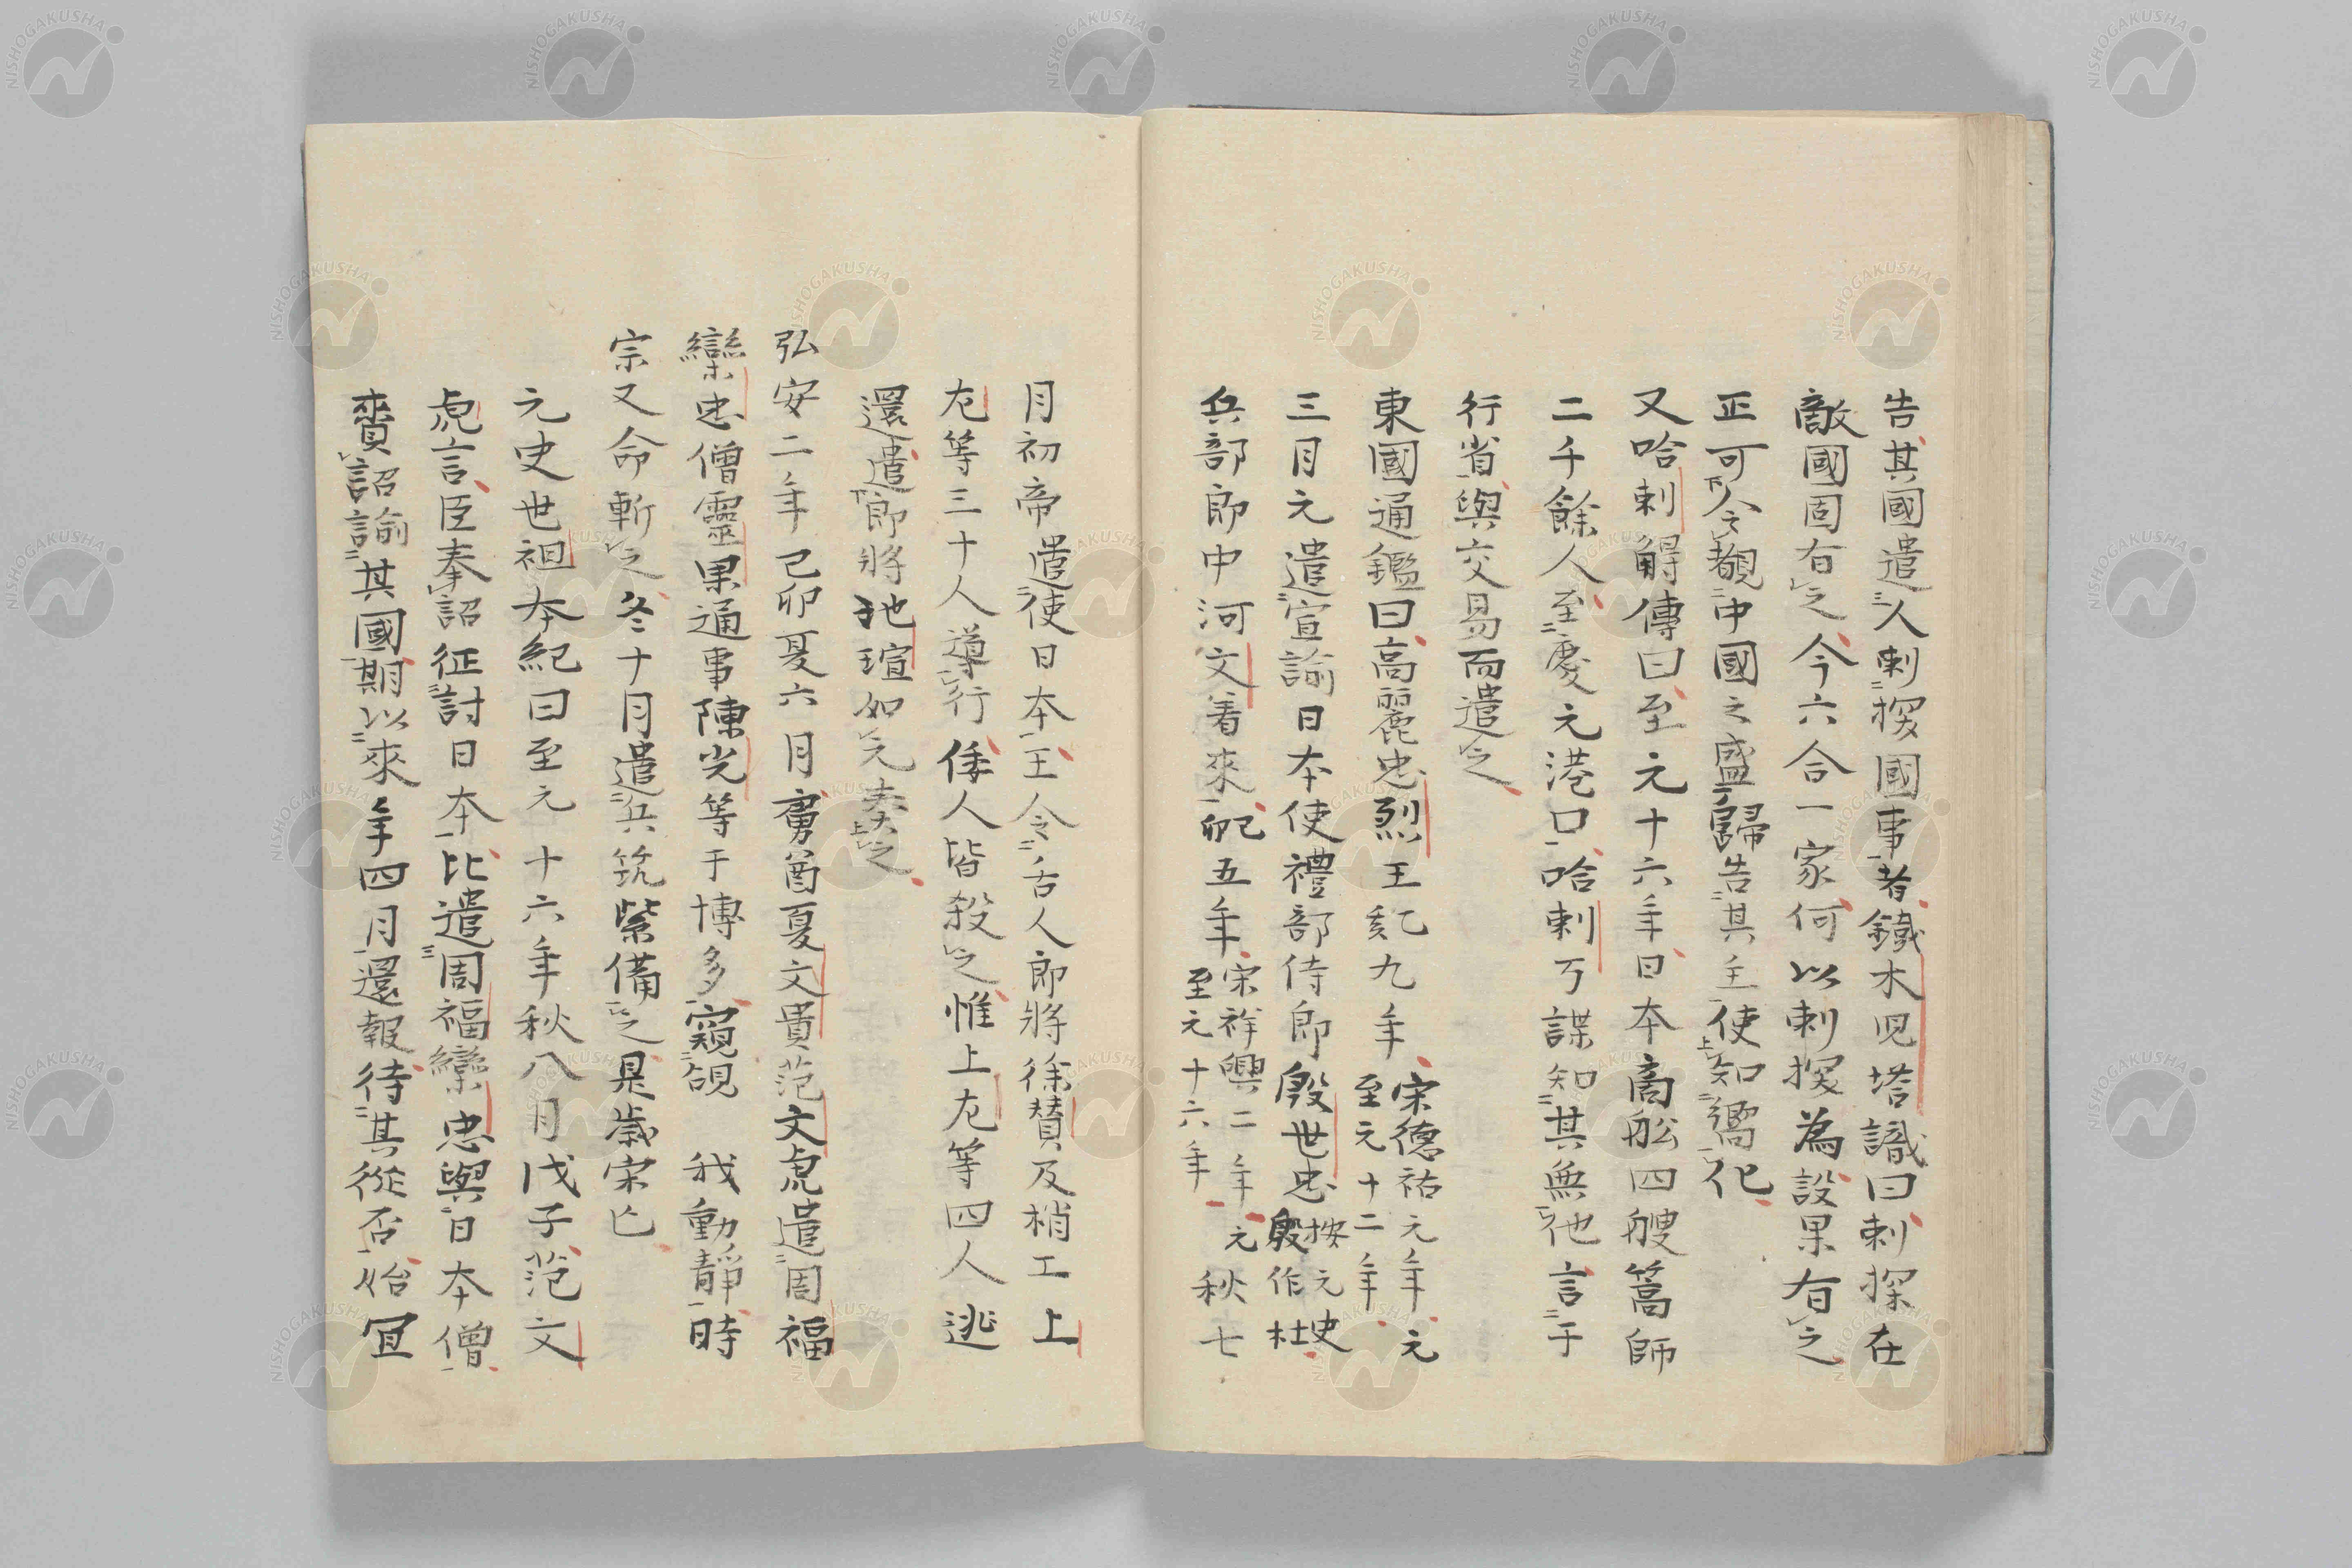 告其國遣人刺探國事者鐵木児塔識曰刺探在
敵國固有之今六合一家何以刺探為設果有之
正可令覩中國之盛歸告其主使知嚮化
又哈剌䚟傳曰至元十六年日本商舩四艘篙師
二千餘人至慶元港口哈剌歹諜知其無他言于
行省與交易而遣之
東國通鑑曰高麗忠烈王紀九年宋德祐元年元至元十二年
三月元遣宣諭日本使禮部侍郎殷世忠按元史殷作杜
兵部郎中河文着來己卯五年宋祥興二年元至元十六年秋七
月初帝遣使日本王令舌人郎將徐賛及梢工上
左等三十人導行倭人皆殺之惟上左等四人逃
還遣郎將池瑄如元奏之
弘安二年己卯夏六月虜酋夏文貴范文虎遣周福
欒忠僧靈果通事陳光等于博多窺覘 我動靜時
宗又命斬之冬十月遣兵筑紫備之是歲宋亡
元史世祖本紀曰至元十六年秋八月戊子范文
虎言臣奉詔征討日本比遣周福欒忠與日本僧
賷詔諭其國期以來年四月還報待其從否始宜